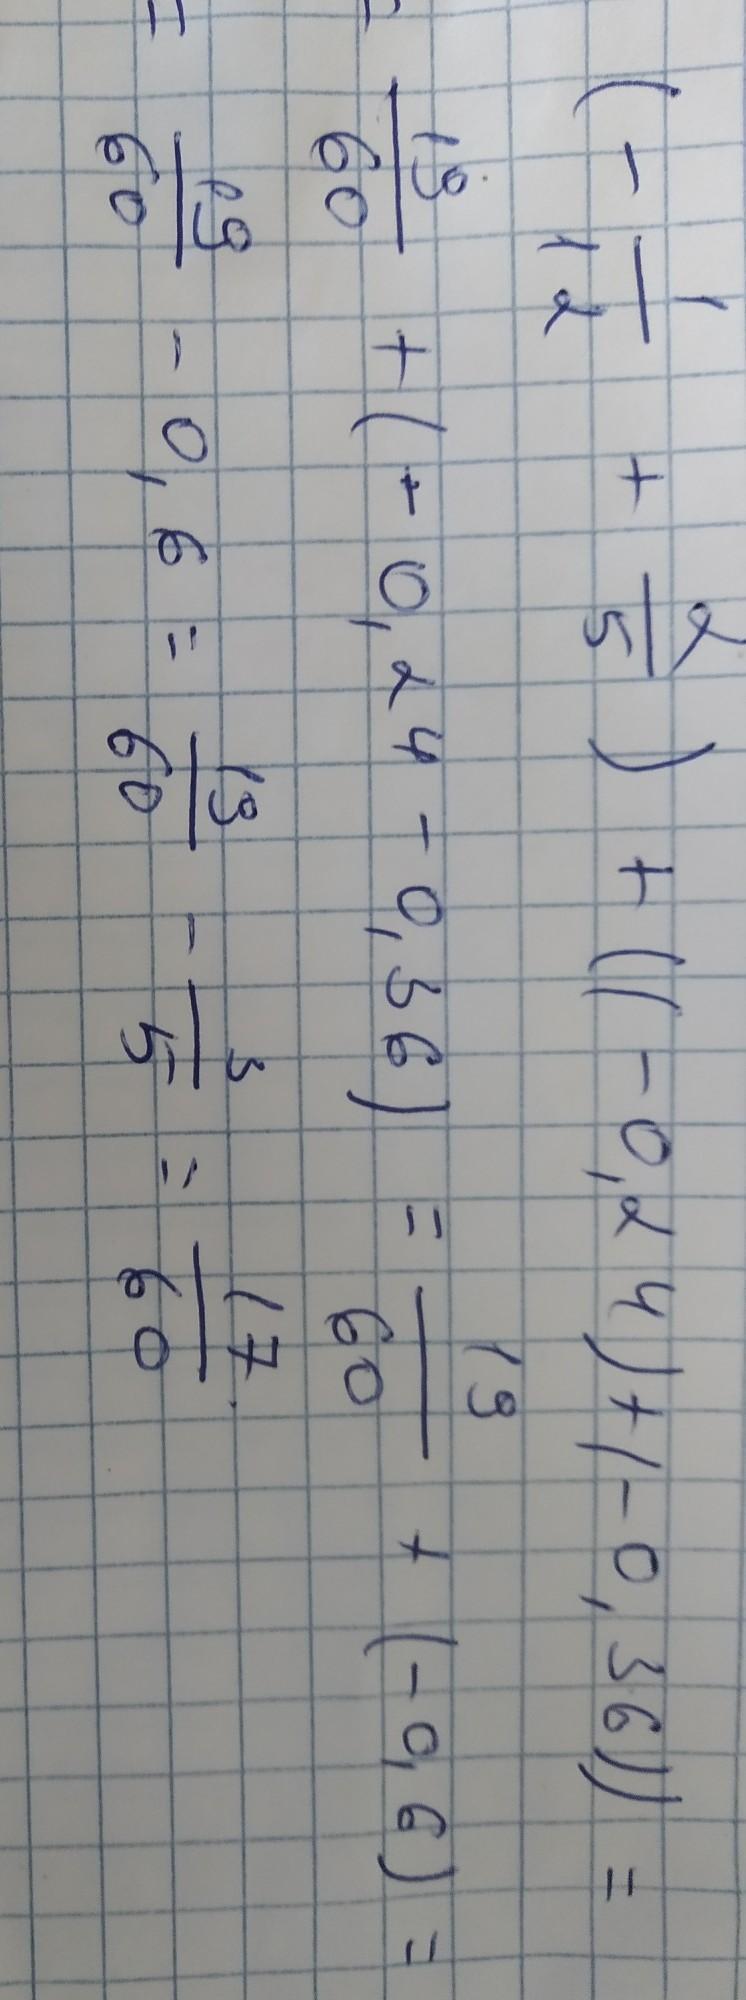 (- 1/12 + 2/5) + ((-0,24) + (-0,36)) =
= 19/60 + (- 0,24 - 0,36) = 19/60 + (-0,6) =
= 19/60 - 0,6 = 19/60 - 3/5 = 17/60